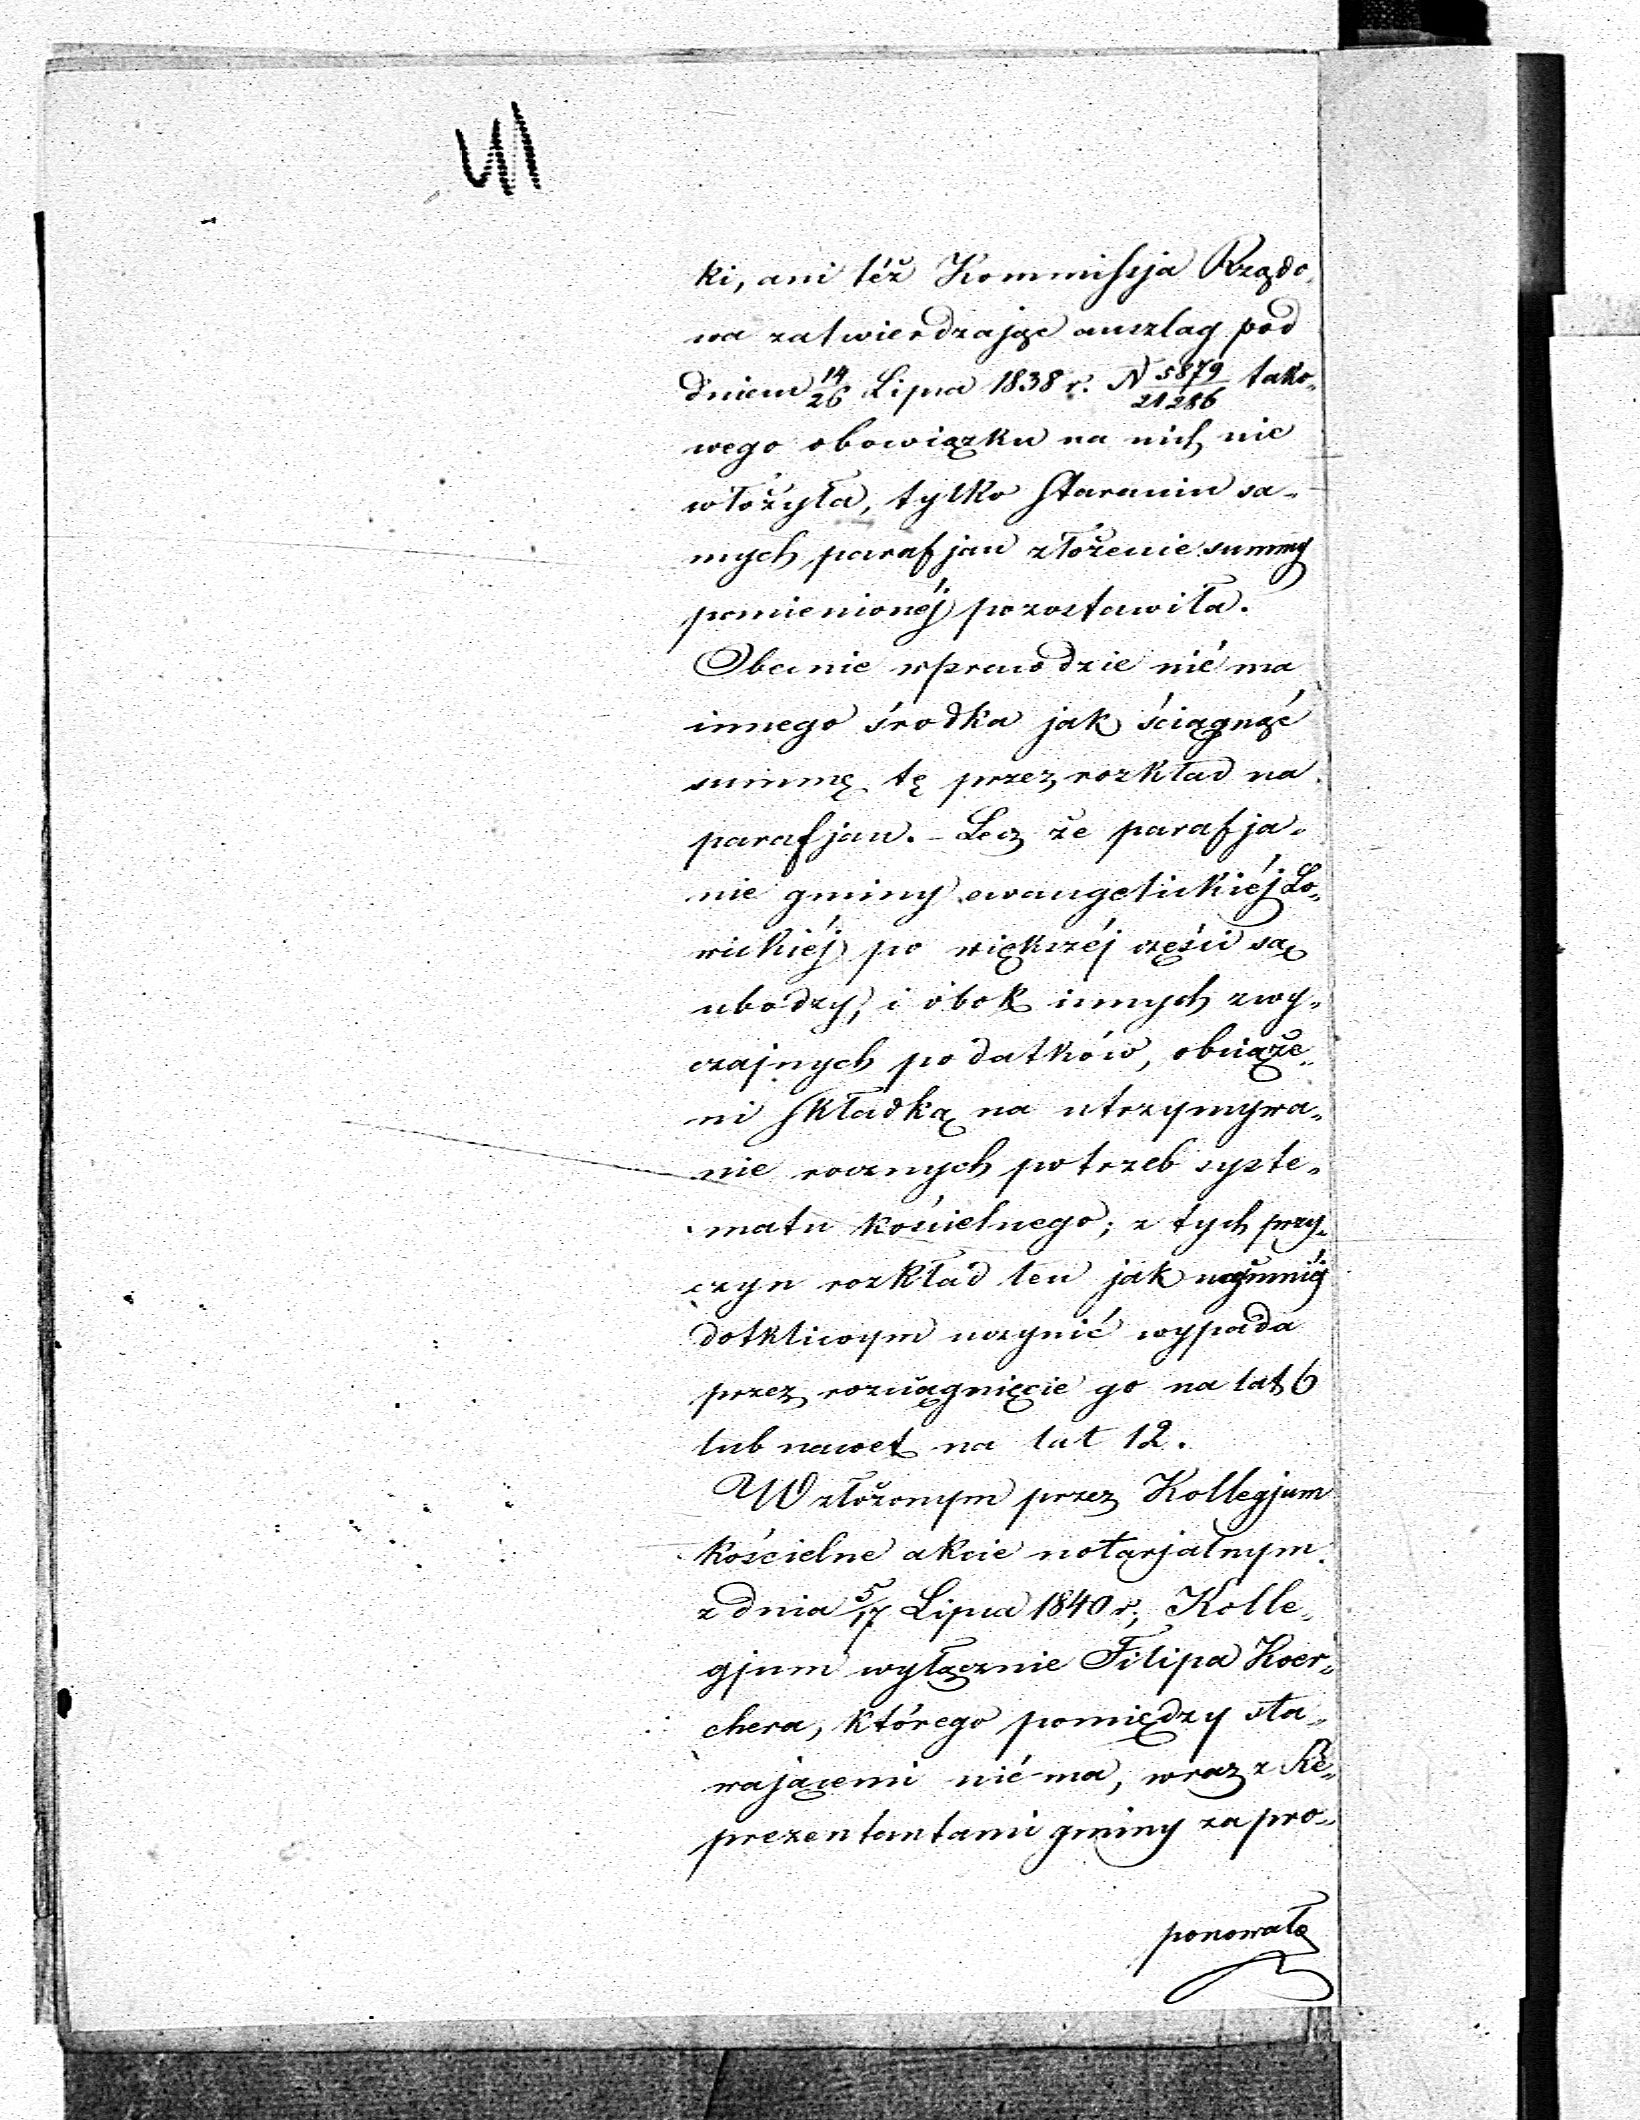 41
ki, ani też Kommissja Rządo-
wa zatwierdzając anszlag pod
dniem 14/26 Lipca 1838 r. N 5879/21286 tako-
wego obowiązku na nich nie
włożyła, tylko staraniu sa-
mych parafjan złożenie summy
pomienionéj pozostawiła.
Obecnie wprawdzie nié ma
innego środka jak ściągnąć
summę tę przez rozkład na
parafjan. - Lecz że parafja-
nie gminy ewangelickiéj Ło-
wickiéj po większéj części są
ubodzy, i obok innych zwy-
czajnych podatków, obciąże-
ni składką na utrzymywa-
nie rocznych potrzeb syste-
matu kościelnego; z tych przy-
czyn rozkład ten jak najmniéj
dotkliwym uczynić wypada
przez rozciągnięcie go na lat 6
lub nawet na lat 12.
W złożonym przez Kollegjum
kościelne akcie notarjalnym
z dnia 5/17 Lipca 1840 r; Kolle-
gjum wyłącznie Filipa Koer-
chera, którego pomiędzy sta-
wającemi nié-ma, wraz z Re-
prezentantami gminy zapro-
ponowało